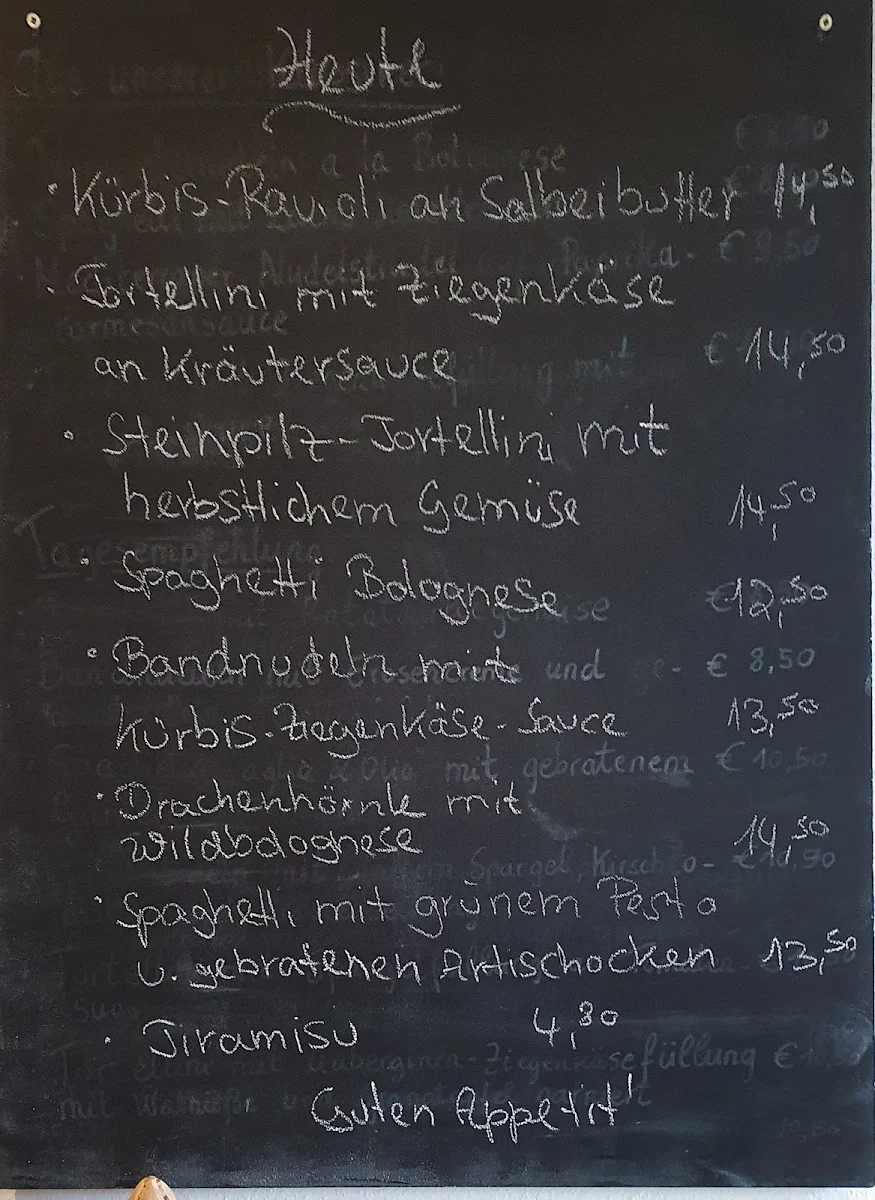 Heute
· Kürbis-Ravioli an Salbeibutter 14,50
· Tortellini mit Ziegenkäse
an Kräutersauce € 14,50
· Steinpilz-Tortellini mit
herbstlichem Gemüse 14,50
· Spaghetti Bolognese €12,50
· Bandnudeln mit
Kürbis-Ziegenkäse-Sauce 13,50
· Drachenhörnle mit
Wildbolognese 14,50
· Spaghetti mit grünem Pesto
u. gebratenen Artischocken 13,50
· Tiramisu 4,80
Guten Appetit!